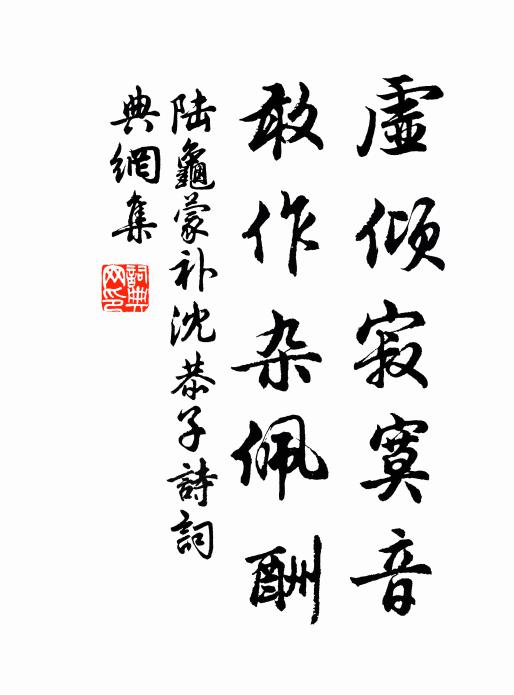 虛傾寂寞音
敢作杂佩酬
陆龜蒙补沈恭子詩詞
典網集
詞典网印